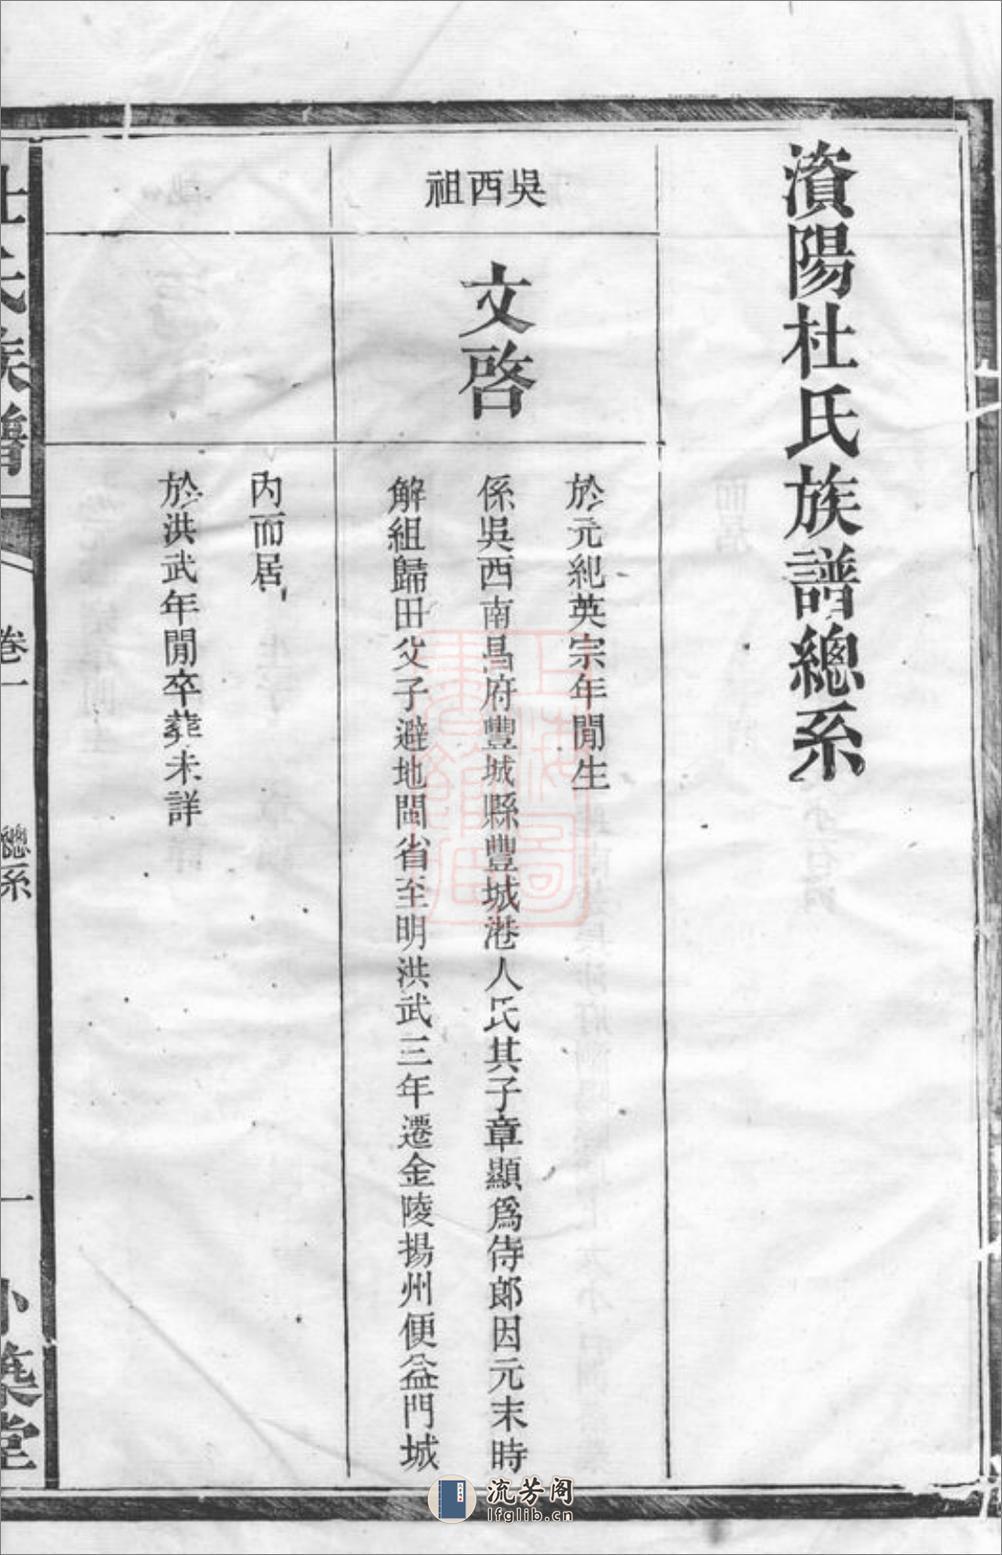 濱陽杜氏族譜總系
吳西祖
文啓
於元紀英宗年閒生
係吳西南昌府豐城縣豐城港人氏其子章顯爲侍郎因元末時
解組歸田父子避地閩省至明洪武三年遷金陵揚州便益門城
內而居
於洪武年閒卒葬未詳
杜氏族譜
卷一
總系
一
上海圖書館藏
流芳阁
lfglib.cn